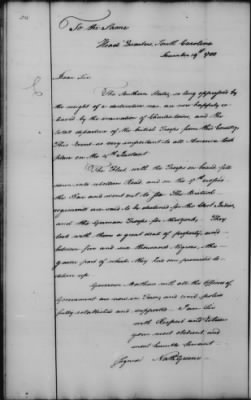 To the Same
Head Quarters, South Carolina
December 19th 1782
Dear Sir
The Southern States, so long oppressed by
the weight of a destructive war are now happily re-
lieved by the evacuation of Charlestown, and the
total departure of the British Troops from this Country.
This Event is very important to all America & took
place on the 14th Instant
The Fleet with the Troops on board fell
down into rebellion Road, and on the 17th crossed
the Bar and went out to Sea. The British
regiments are said to be destined for the West Indies
and the German Troops for Newyork. They
took with them a great deal of property, and
between five and six thousand Negroes, the
greater part of which they had once promised to
deliver up.
Governor Mathews with all the Officers of
Government are now in Town, and civil police
fully established and supported. I am Sir
with Respect and Esteem
your most obedient, and
most humble Servant
Signed Nath Greene